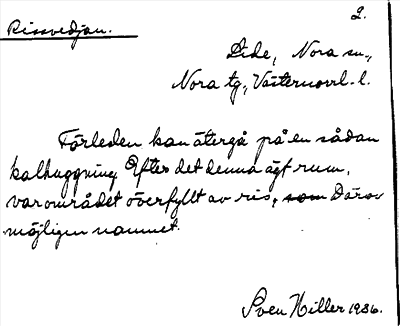 2.
Rissvedjan.
Lide, Nora sn.,
Nora tg, Västernorrl. l.
Förleden kan återgå på en sådan
kalhuggning Efter det denna ägt rum,
var området överfyllt av ris, som Därav
möjligen namnet.
Sven Hiller 1936.